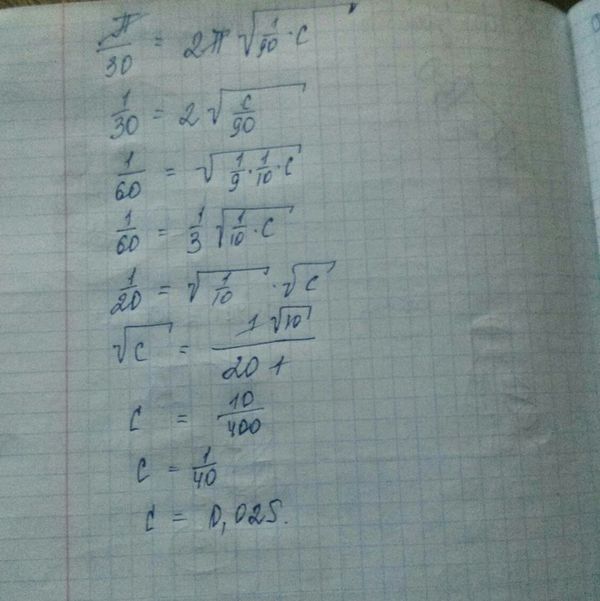 π/30 = 2π √(1/90 · C)
1/30 = 2 √(C/90)
1/60 = √(1/9 · 1/10 · C)
1/60 = 1/3 √(1/10 · C)
1/20 = √(1/10) · √C
√C = 1√10/20 1
C = 10/400
C = 1/40
C = 0,025.